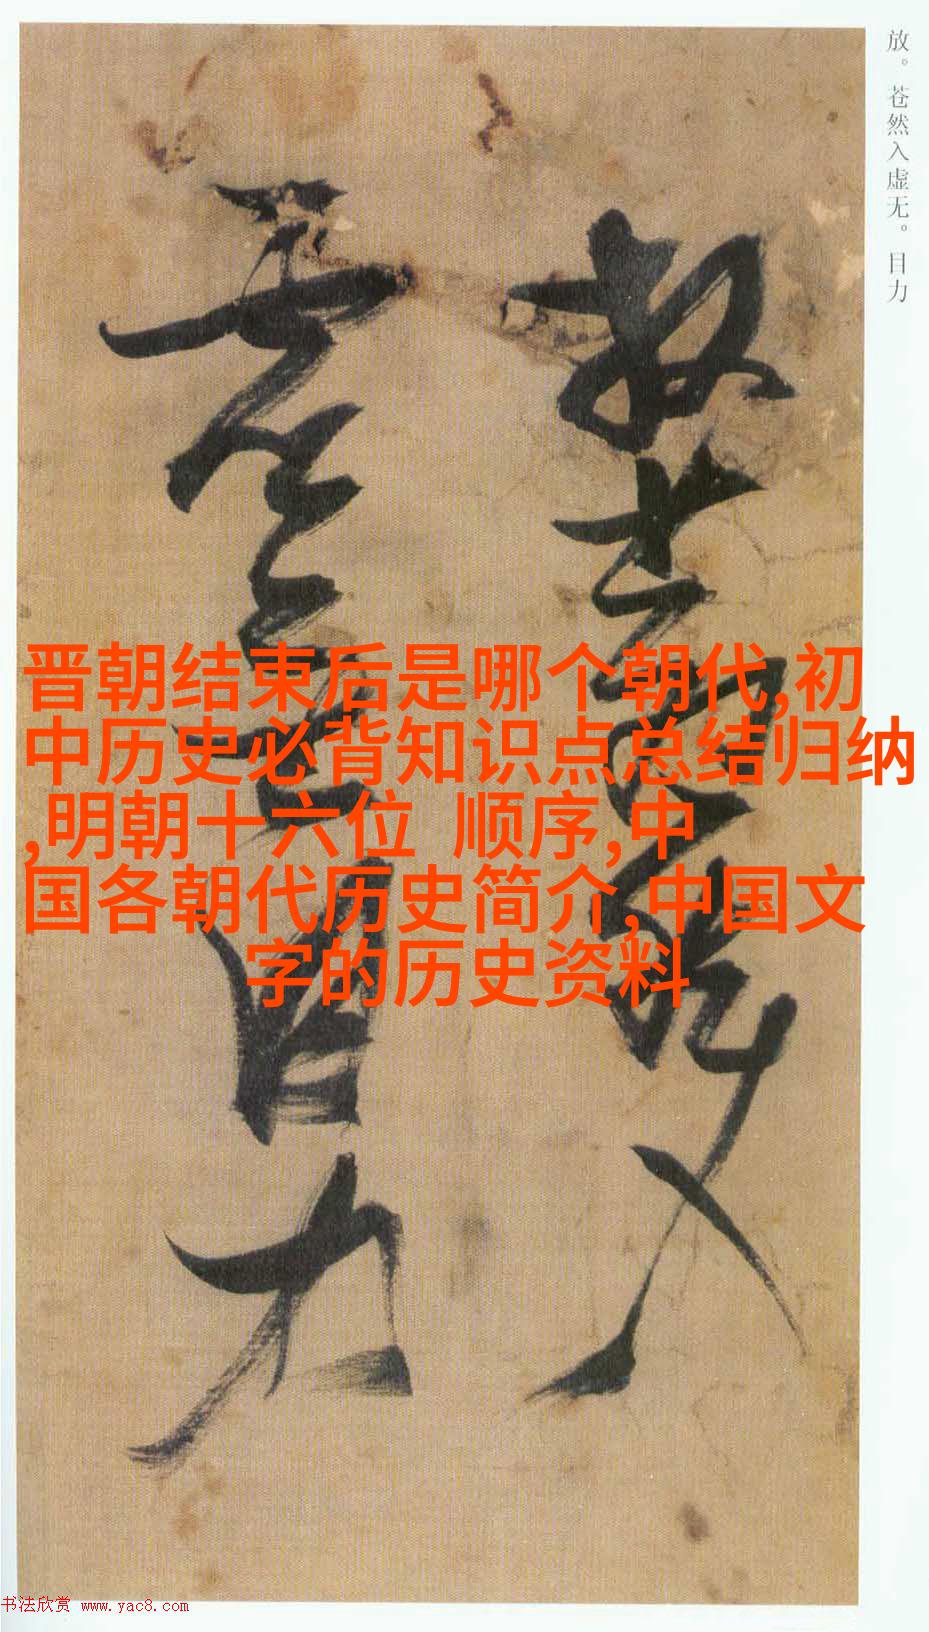 放。苍然入虚无。目力
放苍然入
虚无目力
晋朝结束后是哪个朝代,初
中历史必背知识点总结归纳
,明朝十六位 顺序,中
国各朝代历史简介,中国文
字的历史资料
书法欣赏 www.yac8.com